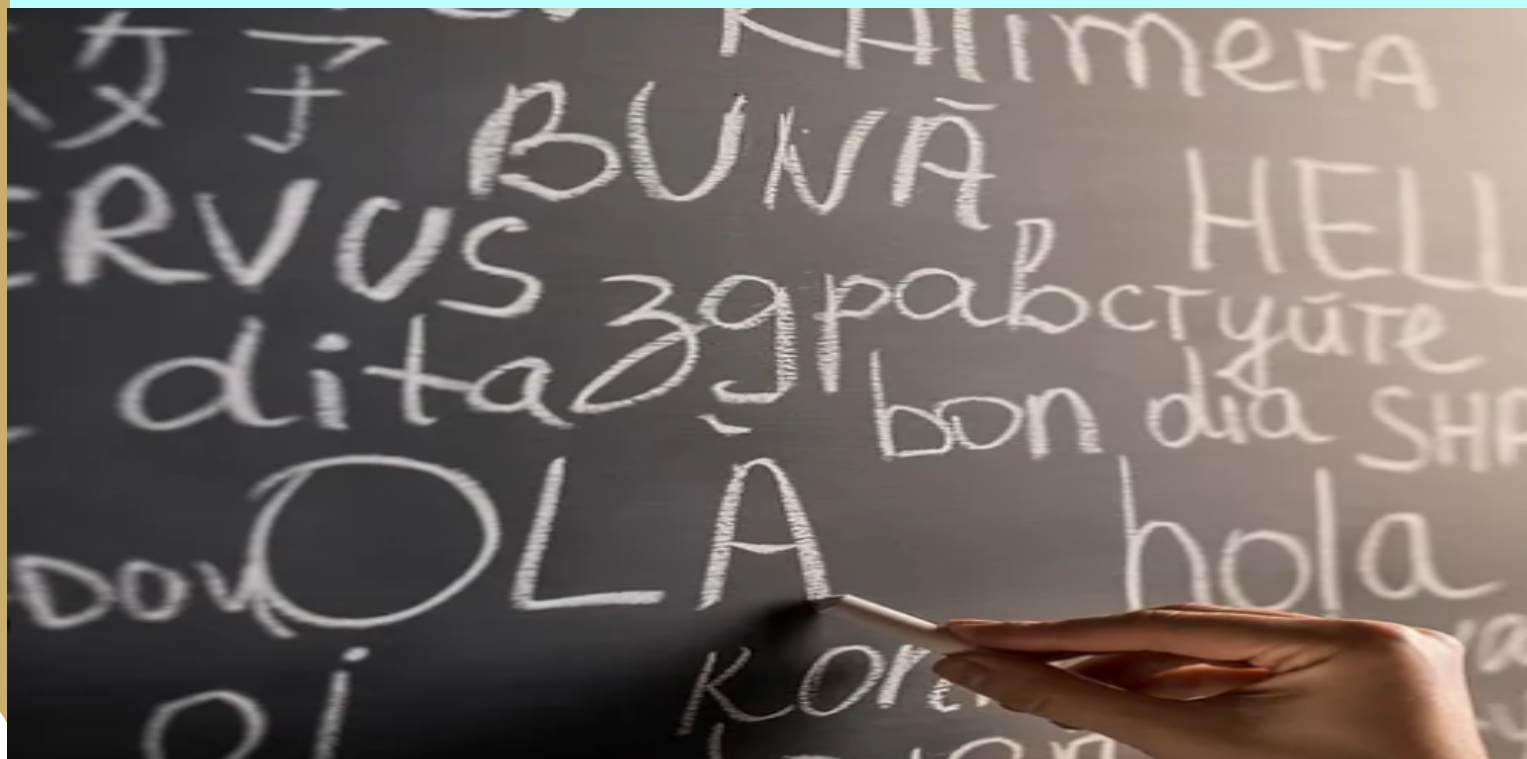 KAlimerA
BUNĂ
HELL
ERVUS
здравствуйте
dita
bon dia
SHA
OLÀ
hola
DOV
oi